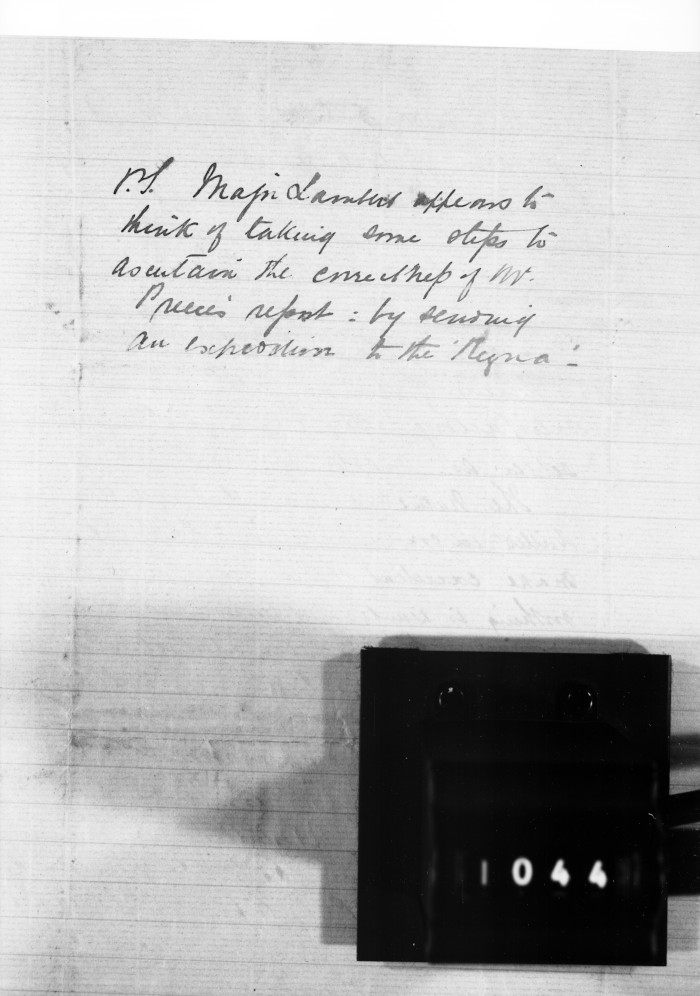 P.S. Major Lambert appears to
think of taking some steps to
ascertain the correctness of Mr.
Preece's report : by sending
an expedition to the 'Regna' -
1044